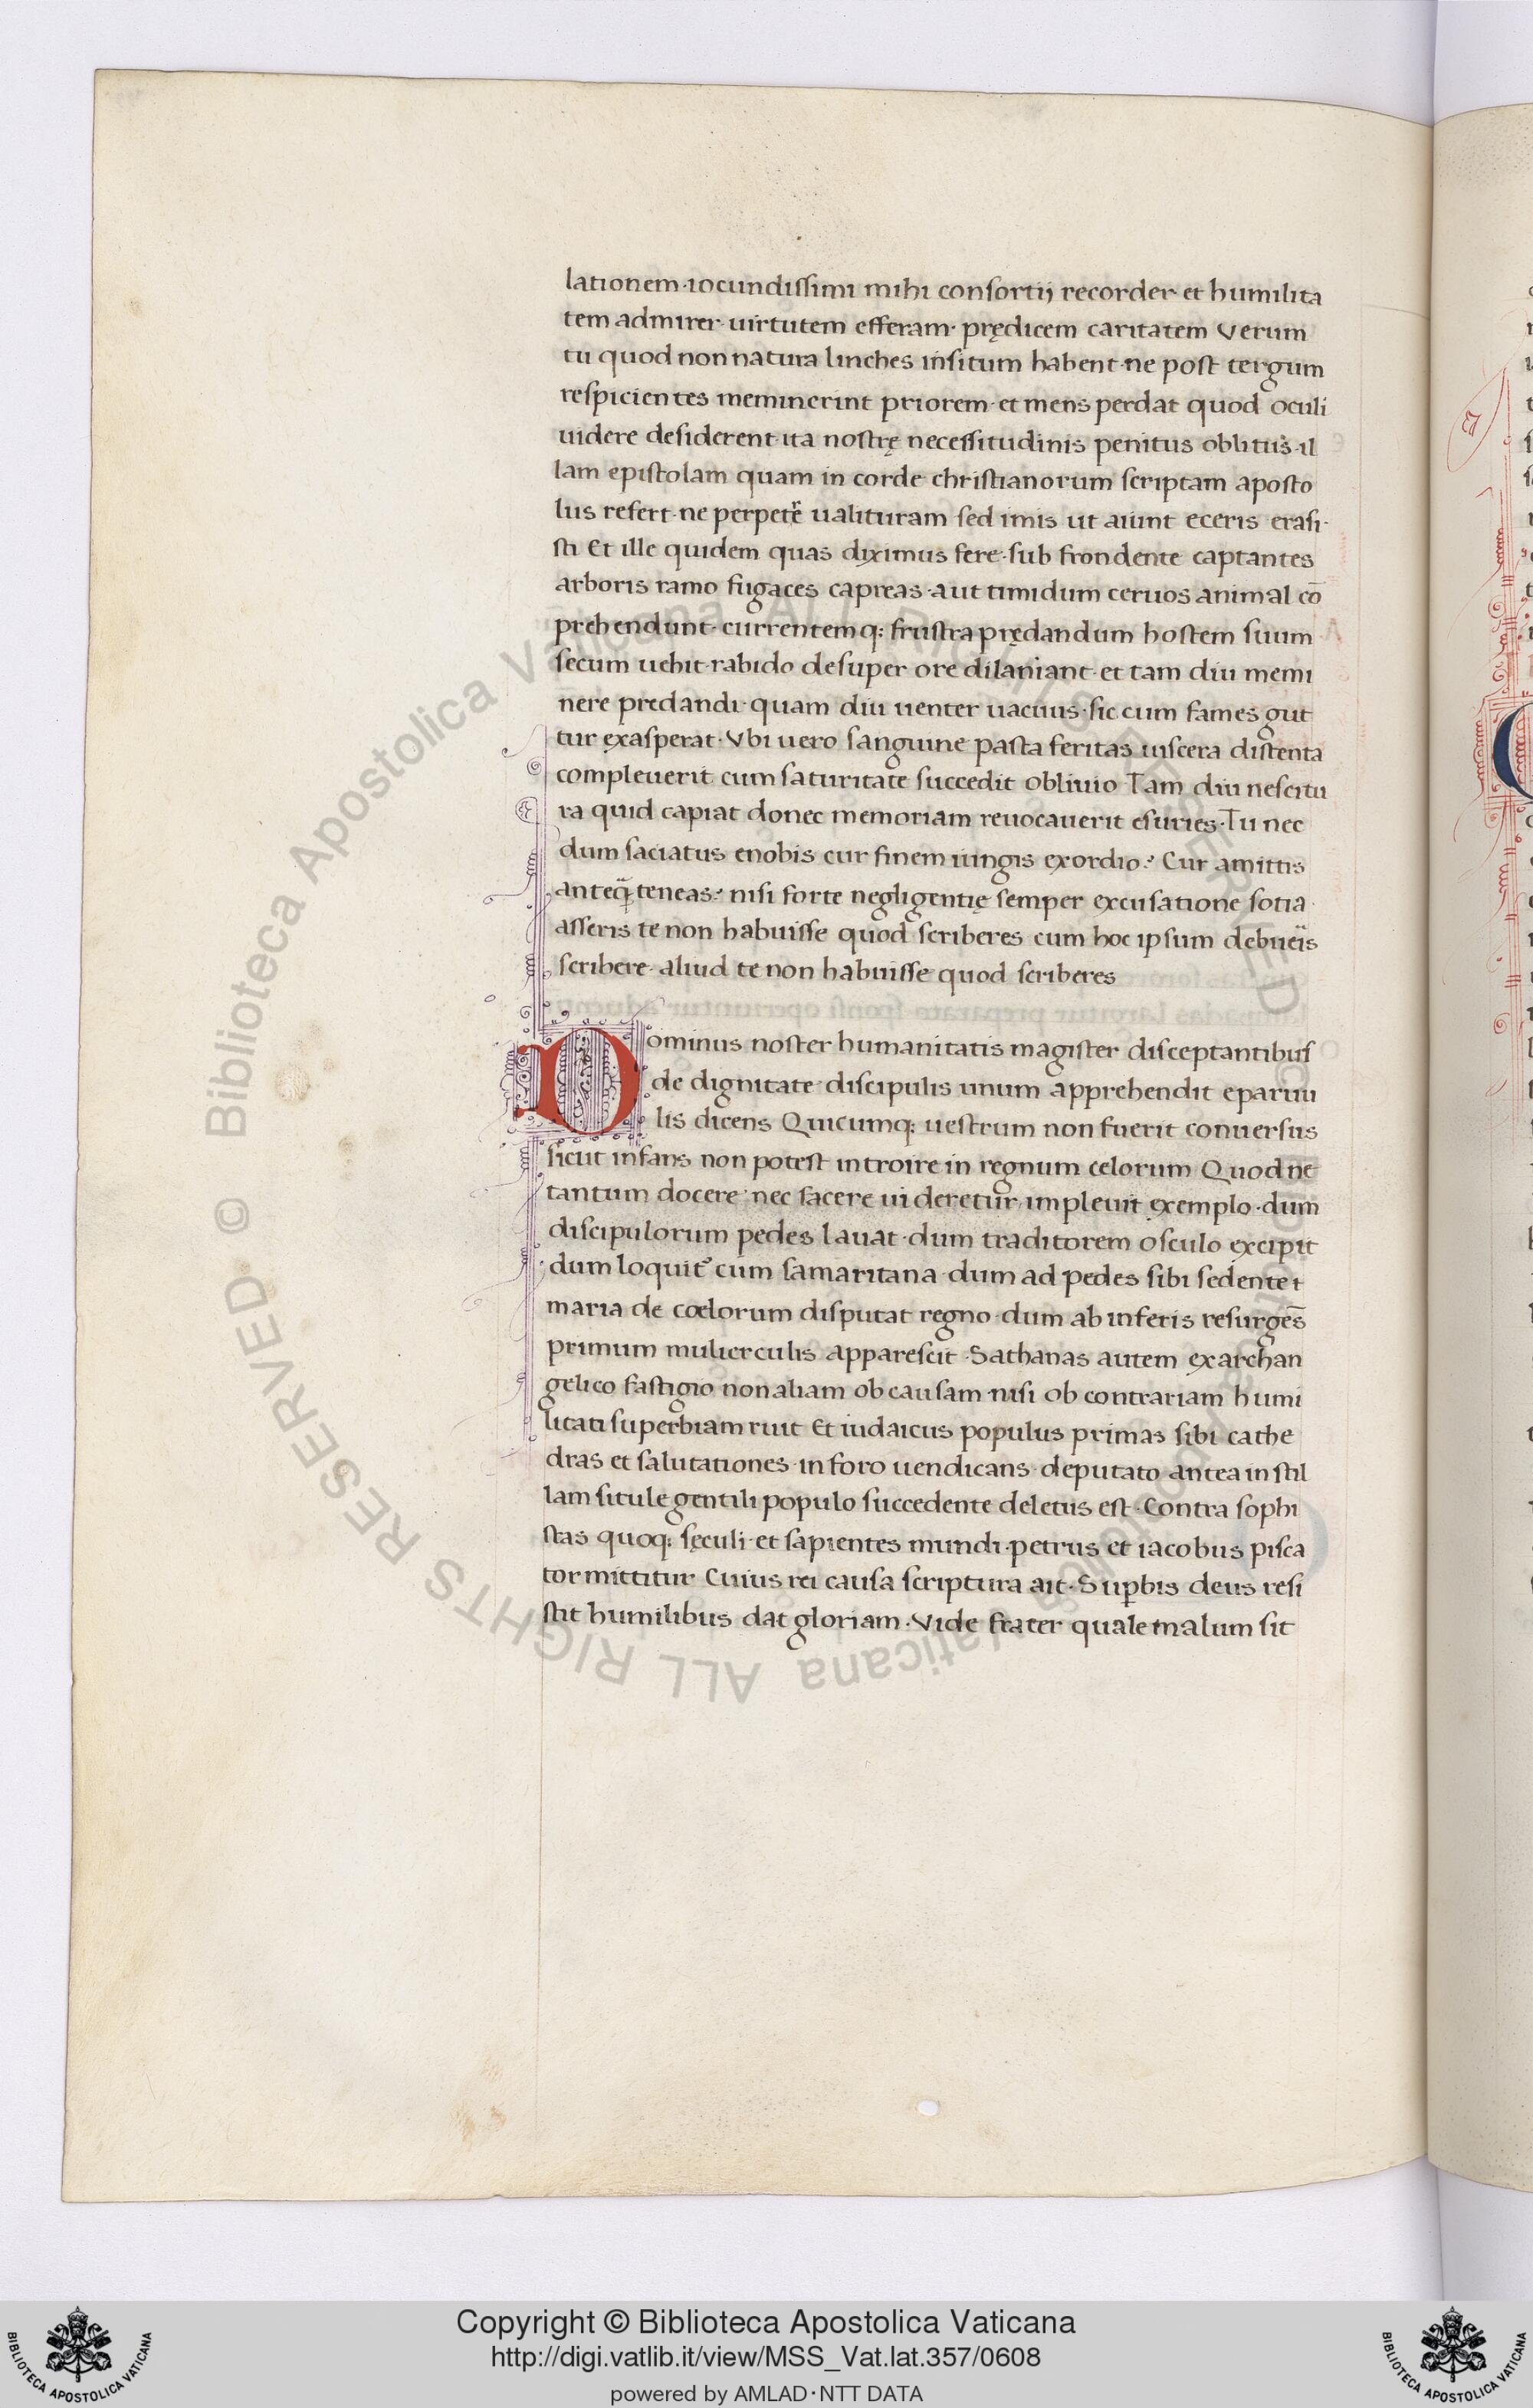 lationem·iocundissimi mihi consortij recorder·et humilita
tem admirer·uirtutem efferam·prędicem caritatem Verum
tu quod non natura linches insitum habent·ne post tergum
respicientes meminerint priorem·et mens perdat quod oculi
uidere desiderent·ita nostrę necessitudinis penitus oblitus·il
lam epistolam quam in corde christianorum scriptam aposto
lus refert·ne perpetē ualituram sed imis ut aiunt eceris erasi·
sti Et ille quidem quas diximus fere·sub frondente captantes
arboris ramo fugaces capreas·aut timidum ceruos animal cō
prehendunt·currentemq; frustra prędandum hostem suum
secum uehit·rabido desuper ore dilaniant·et tam diu memi
nere predandi·quam diu uenter uacuus·sic cum fames gut
tur exasperat·Vbi uero sanguine pasta feritas uiscera distenta
compleuerit cum saturitate succedit obliuio Tam diu nescitu
ra quid capiat donec memoriam reuocauerit esuries·Tu nec
dum saciatus enobis cur finem iungis exordio? Cur amittis
anteq̃ teneas? nisi forte negligentię semper excusatione sotia·
asseris te non habuisse quod scriberes cum hoc ipsum debueīs
scribere·aliud te non habuisse quod scriberes
Dominus noster humanitatis magister disceptantibus
de dignitate discipulis unum apprehendit eparuu
lis dicens Quicumq; uestrum non fuerit conuersus
sicut infans non potest introire in regnum celorum Quod ne
tantum docere·nec facere uideretur·impleuit exemplo·dum
discipulorum pedes lauat·dum traditorem osculo excipit
dum loquit᾽ cum samaritana·dum ad pedes sibi sedente
maria de cœlorum disputat regno·dum ab inferis resurgēs
primum mulierculis apparescit·Sathanas autem exarchan
gelico fastigio non aliam ob causam·nisi ob contrariam humi
litati superbiam ruit Et iudaicus populus primas sibi cathe
dras et salutationes·in foro uendicans·deputato antea in stil
lam situle gentili populo succedente deletus est·Contra sophi
stas quoq; sęculi·et sapientes mundi·petrus et iacobus pisca
tor mittitur Cuius rei causa scriptura ait·Sup̱bis deus resi
stit humilibus dat gloriam·Vide frater quale malum sit
Biblioteca Apostolica Vaticana ALL RIGHTS RESERVED ©
Copyright © Biblioteca Apostolica Vaticana
http://digi.vatlib.it/view/MSS_Vat.lat.357/0608
powered by AMLAD·NTT DATA
BIBLIOTECA APOSTOLICA VATICANA
BIBLIOTECA APOSTOLICA VATICANA